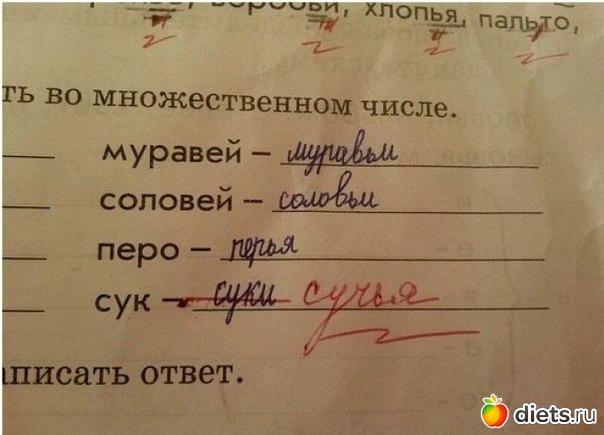 воробьи, хлопья, пальто,
ть во множественном числе.
муравей – муравьи
соловей – соловьи
перо – перья
сук – суки сучья
писать ответ.
diets.ru